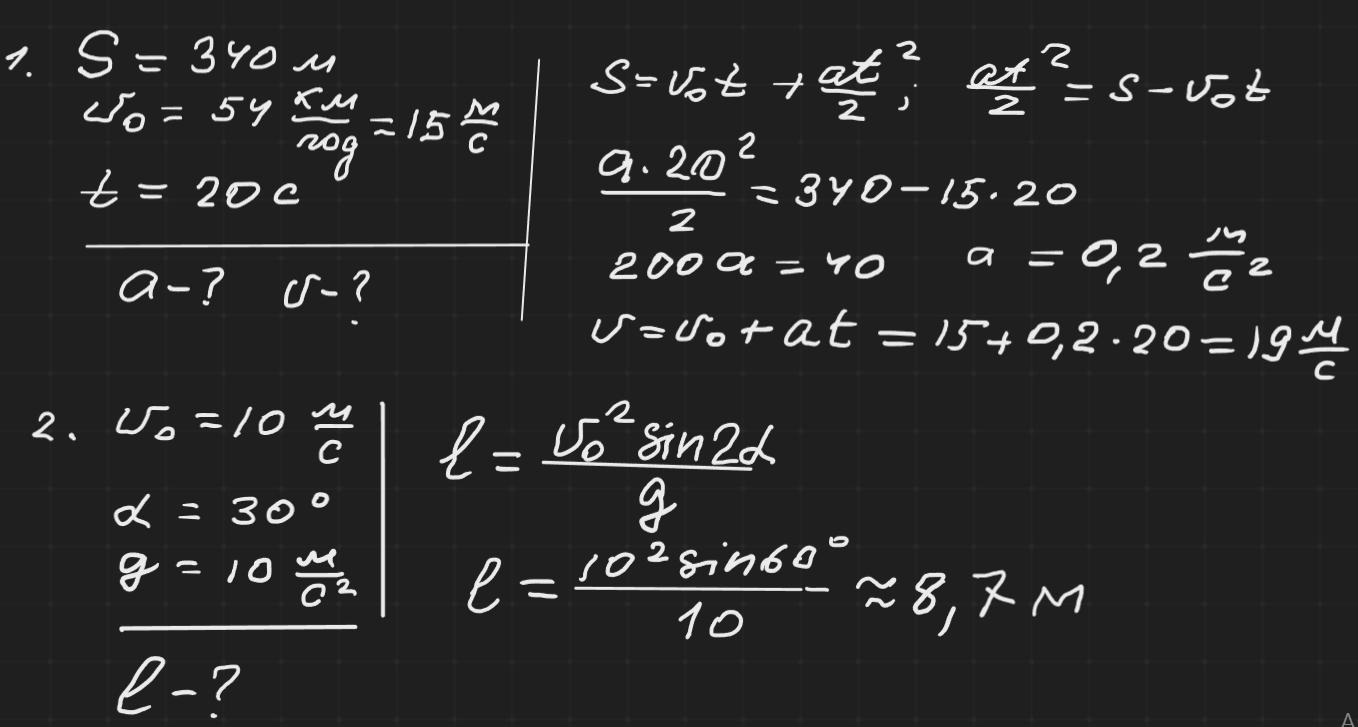 1. S = 340 м
v₀ = 54 км/год = 15 м/с
t = 20 с
a - ? v - ?
S = v₀t + at²/2; at²/2 = s - v₀t
a·20²/2 = 340 - 15·20
200a = 40 a = 0,2 м/с²
v = v₀ + at = 15 + 0,2·20 = 19 м/с
2. v₀ = 10 м/с
α = 30°
g = 10 м/с²
ℓ - ?
ℓ = v₀² sin2α/g
ℓ = 10² sin60°/10 ≈ 8,7 м